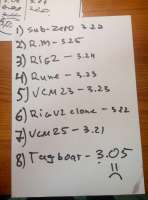 1) Sub-Zero 3.28
2) R.M - 3.25
3) Rig2 - 3.24
4) Rune - 3.23
5) VCM23 - 3.23
6) RigV2 clone - 3.22
7) VCM25 - 3.21
8) Tagboat - 3.05